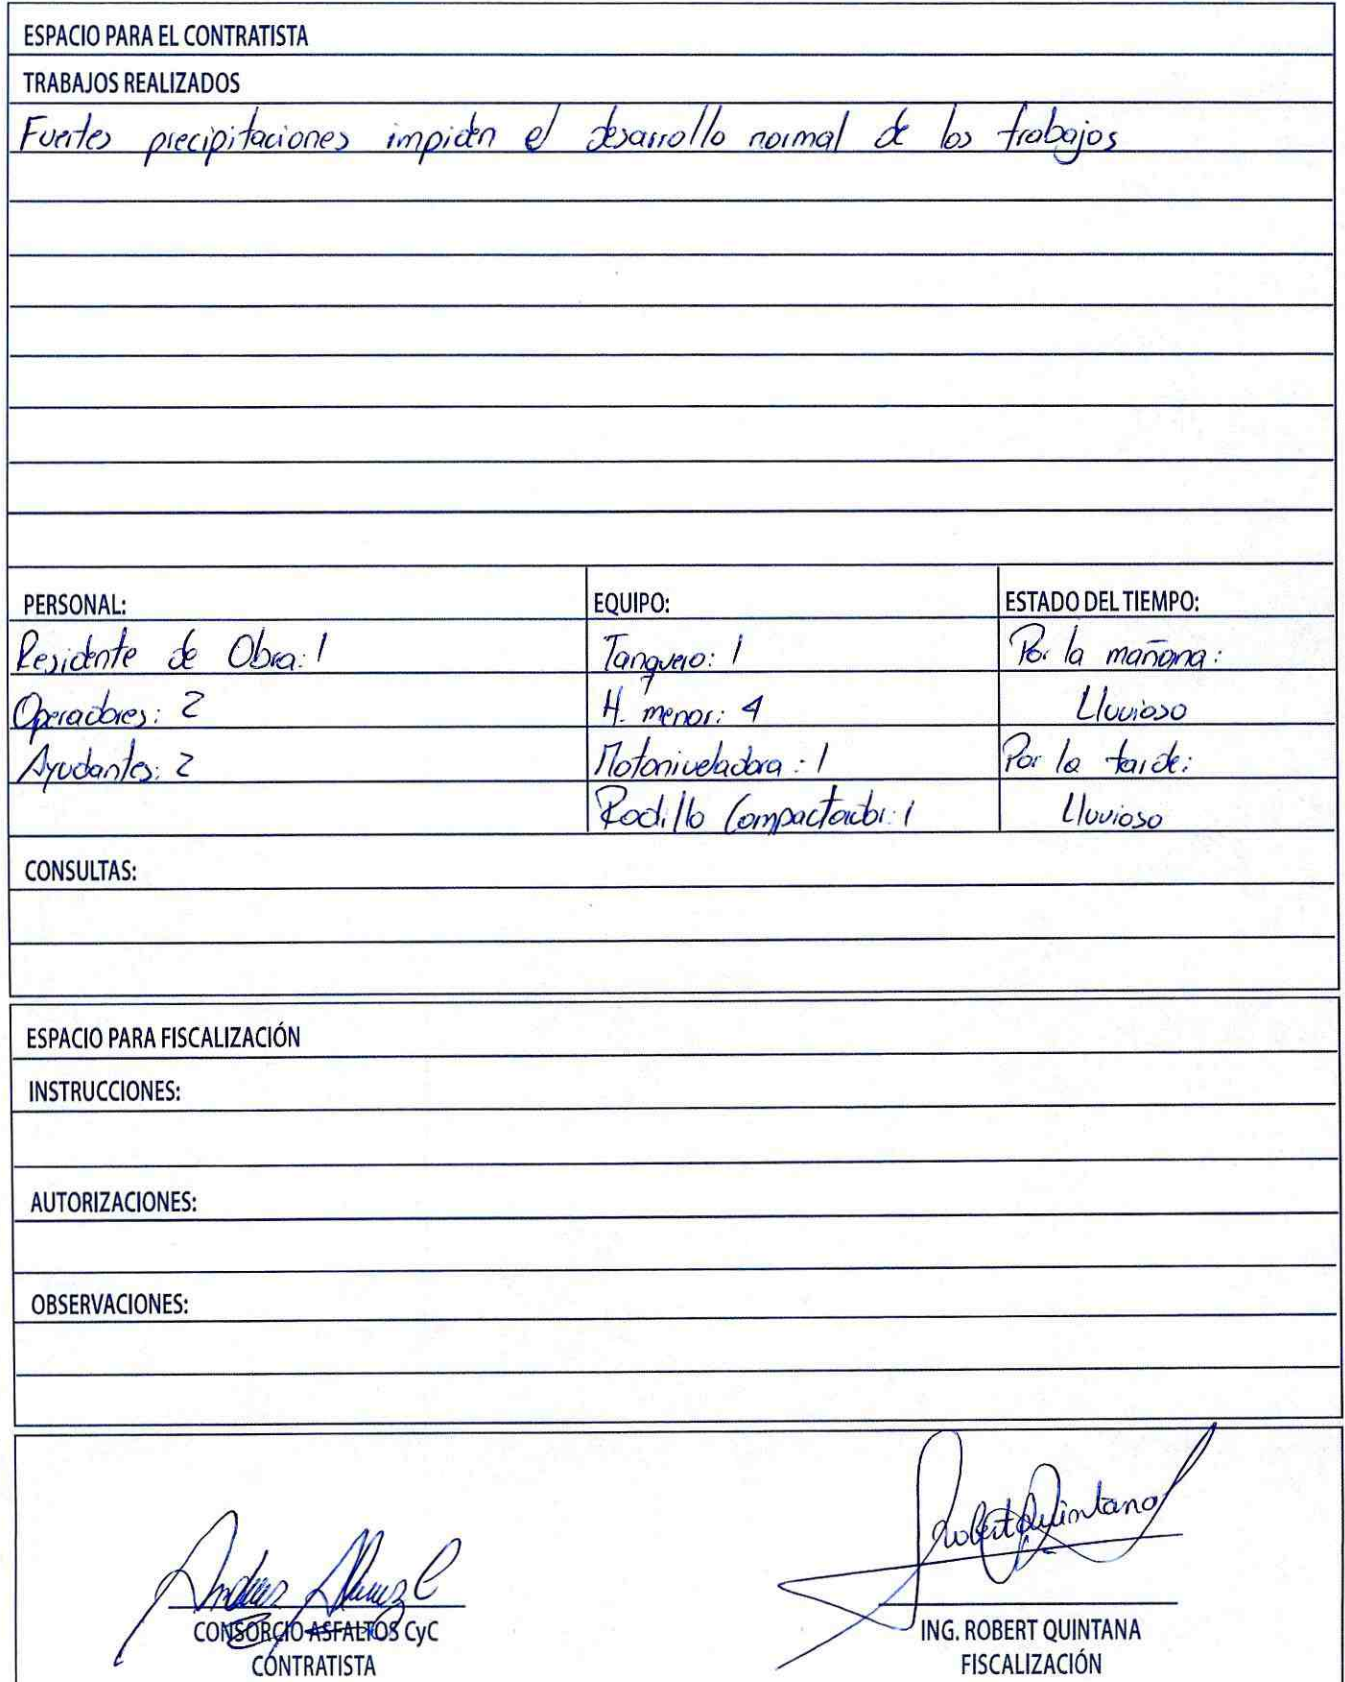 ESPACIO PARA EL CONTRATISTA
TRABAJOS REALIZADOS
Fuertes precipitaciones impiden el desarrollo normal de los trabajos
PERSONAL: EQUIPO: ESTADO DEL TIEMPO:
Residente de Obra: 1 Tanquero: 1 Por la mañana:
Operadores: 2 H. menor: 4 Lluvioso
Ayudantes: 2 Motoniveladora: 1 Por la tarde:
Rodillo Compactador: 1 Lluvioso
CONSULTAS:
ESPACIO PARA FISCALIZACIÓN
INSTRUCCIONES:
AUTORIZACIONES:
OBSERVACIONES:
Robert Quintana
CONSORCIO ASFALTOS CyC ING. ROBERT QUINTANA
CONTRATISTA FISCALIZACIÓN